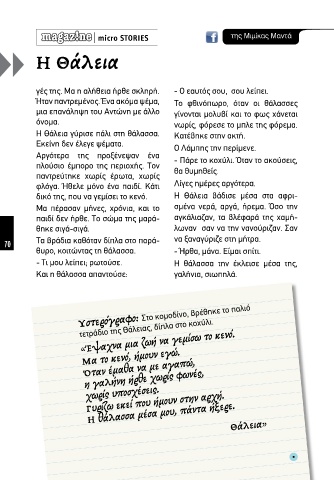 magazine | micro STORIES
f
της Μιμίκας Μαντά
Η Θάλεια
γές της. Μα η αλήθεια ήρθε σκληρή.
Ήταν παντρεμένος. Ένα ακόμα ψέμα,
μια επανάληψη του Αντώνη με άλλο
όνομα.
Η Θάλεια γύρισε πάλι στη θάλασσα.
Εκείνη δεν έλεγε ψέματα.
Αργότερα της προξένεψαν ένα
πλούσιο έμπορο της περιοχής. Τον
παντρεύτηκε χωρίς έρωτα, χωρίς
φλόγα. Ήθελε μόνο ένα παιδί. Κάτι
δικό της, που να γεμίσει το κενό.
Μα πέρασαν μήνες, χρόνια, και το
παιδί δεν ήρθε. Το σώμα της μαρά-
θηκε σιγά-σιγά.
Τα βράδια καθόταν δίπλα στο παρά-
θυρο, κοιτώντας τη θάλασσα.
- Τι μου λείπει; ρωτούσε.
Και η θάλασσα απαντούσε:
- Ο εαυτός σου, σου λείπει.
Το φθινόπωρο, όταν οι θάλασσες
γίνονται μολυβί και το φως χάνεται
νωρίς, φόρεσε το μπλε της φόρεμα.
Κατέβηκε στην ακτή.
Ο Λάμπης την περίμενε.
- Πάρε το κοχύλι. Όταν το ακούσεις,
θα θυμηθείς.
Λίγες ημέρες αργότερα.
Η Θάλεια βάδισε μέσα στα αφρι-
σμένα νερά, αργά, ήρεμα. Όσο την
αγκάλιαζαν, τα βλέφαρά της χαμή-
λωναν σαν να την νανούριζαν. Σαν
να ξαναγύριζε στη μήτρα.
- Ήρθα, μάνα. Είμαι σπίτι.
Η θάλασσα την έκλεισε μέσα της,
γαλήνια, σιωπηλά.
70
Υστερόγραφο: Στο κομοδίνο, βρέθηκε το παλιό
τετράδιο της Θάλειας, δίπλα στο κοχύλι.
«Έψαχνα μια ζωή να γεμίσω το κενό.
Μα το κενό, ήμουν εγώ.
Όταν έμαθα να με αγαπώ,
η γαλήνη ήρθε χωρίς φωνές,
χωρίς υποσχέσεις.
Γυρίζω εκεί που ήμουν στην αρχή.
Η θάλασσα μέσα μου, πάντα ήξερε.
Θάλεια»